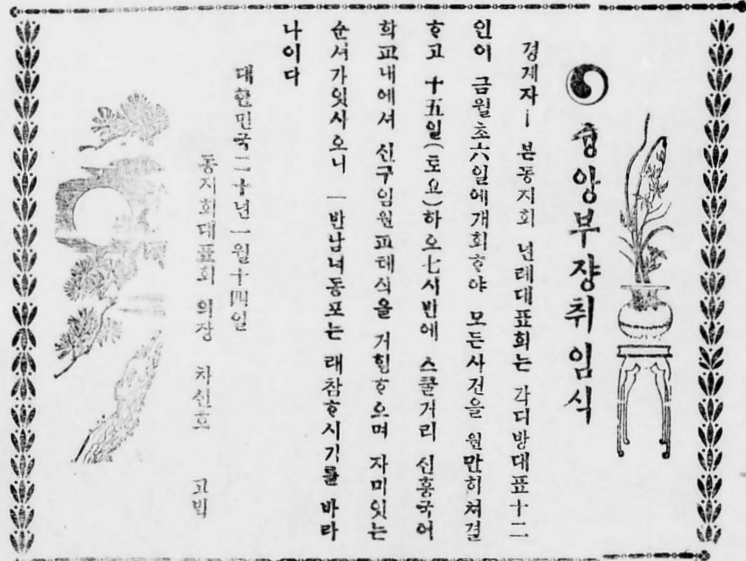 즁앙부쟝취임식
경계자ㅣ 본동지회 년례대표회는 각디방대표十二
인이 금월초六일에개회ᄒᆞ야 모든사건을 원만히쳐결
ᄒᆞ고 十五일(토요)하오七시반에 스쿨거리 신흥국어
학교내에셔 신구임원교톄식을 거힝ᄒᆞ오며 자미잇는
순셔가잇사오니 一반남녀동포는 래참ᄒᆞ시기를 바라
나이다
대한민국二十년一월十四일
동지회대표회 의장 차신호 고빅